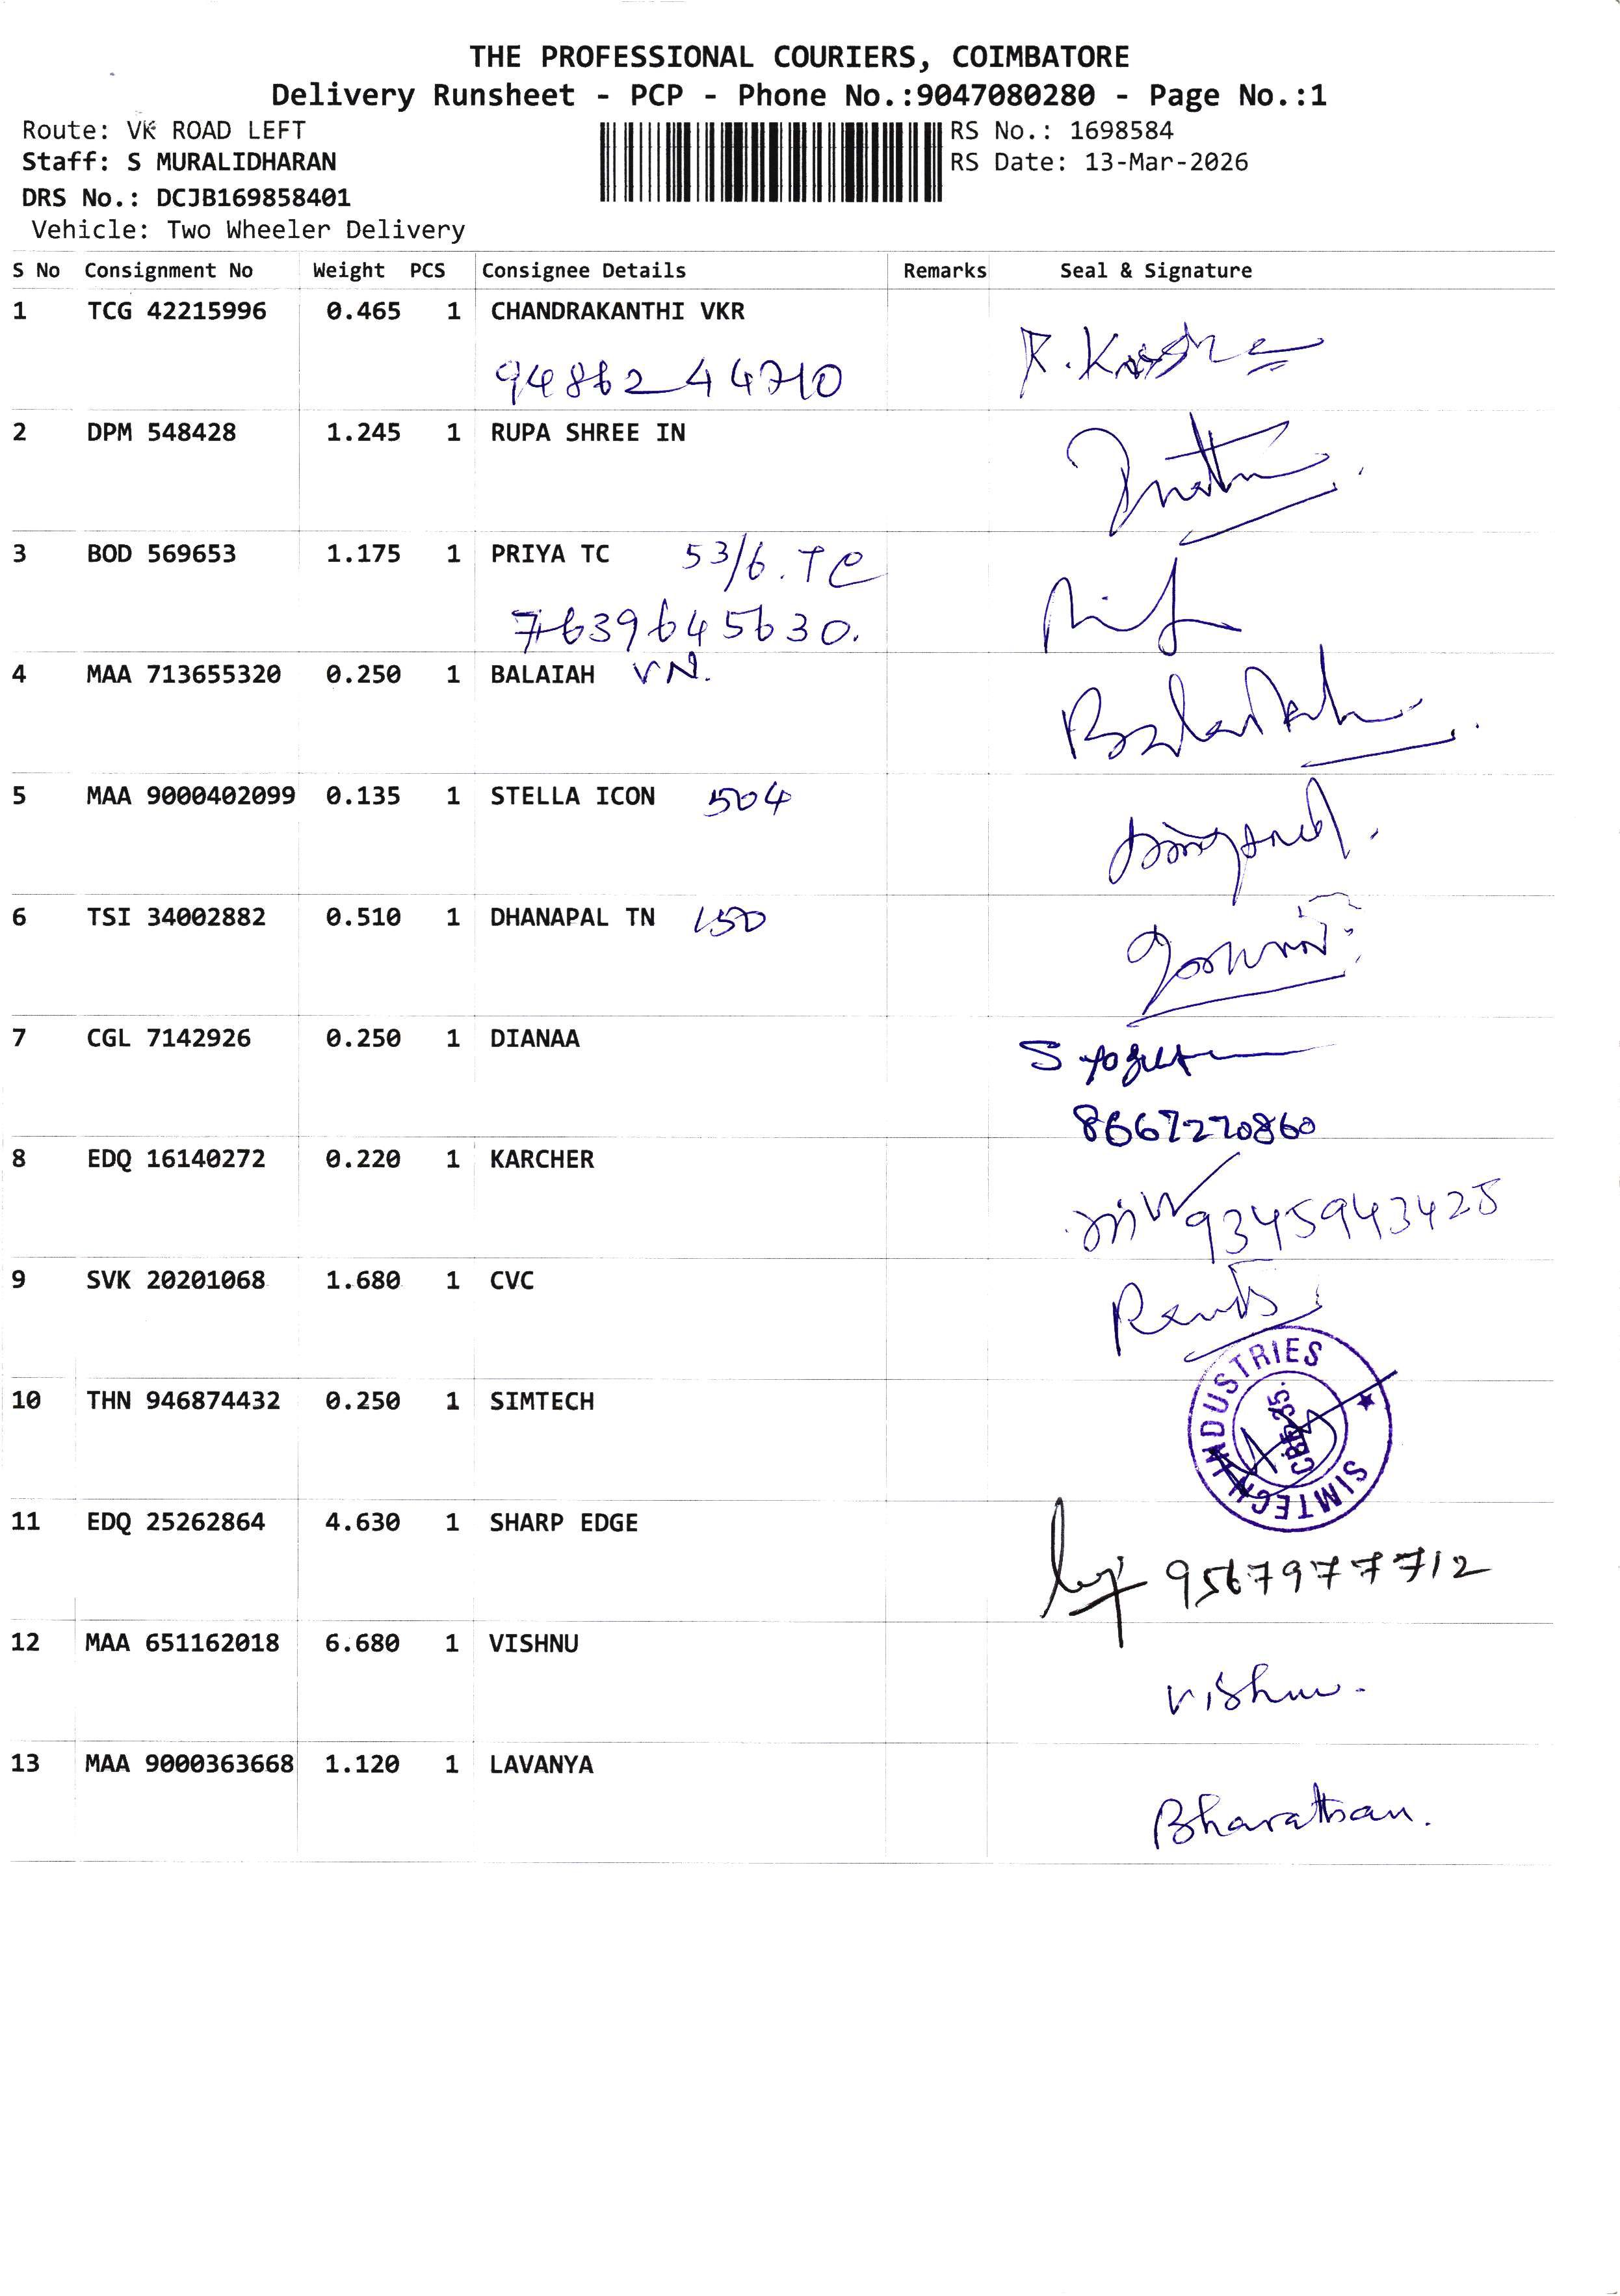 THE PROFESSIONAL COURIERS, COIMBATORE
Delivery Runsheet - PCP - Phone No.:9047080280 - Page No.:1
Route: VK ROAD LEFT
Staff: S MURALIDHARAN
DRS No.: DCJB169858401
Vehicle: Two Wheeler Delivery
RS No.: 1698584
RS Date: 13-Mar-2026
S No Consignment No Weight PCS Consignee Details Remarks Seal & Signature
1 TCG 42215996 0.465 1 CHANDRAKANTHI VKR
2 DPM 548428 1.245 1 RUPA SHREE IN
3 BOD 569653 1.175 1 PRIYA TC 53/6. TC
7639645630.
4 MAA 713655320 0.250 1 BALAIAH VN.
5 MAA 9000402099 0.135 1 STELLA ICON 504
6 TSI 34002882 0.510 1 DHANAPAL TN 150
7 CGL 7142926 0.250 1 DIANAA
8667270860
8 EDQ 16140272 0.220 1 KARCHER
9345943425
9 SVK 20201068 1.680 1 CVC
10 THN 946874432 0.250 1 SIMTECH
SIMTECH INDUSTRIES
11 EDQ 25262864 4.630 1 SHARP EDGE
9567977712
12 MAA 651162018 6.680 1 VISHNU
Vishnu.
13 MAA 9000363668 1.120 1 LAVANYA
Bharathan.